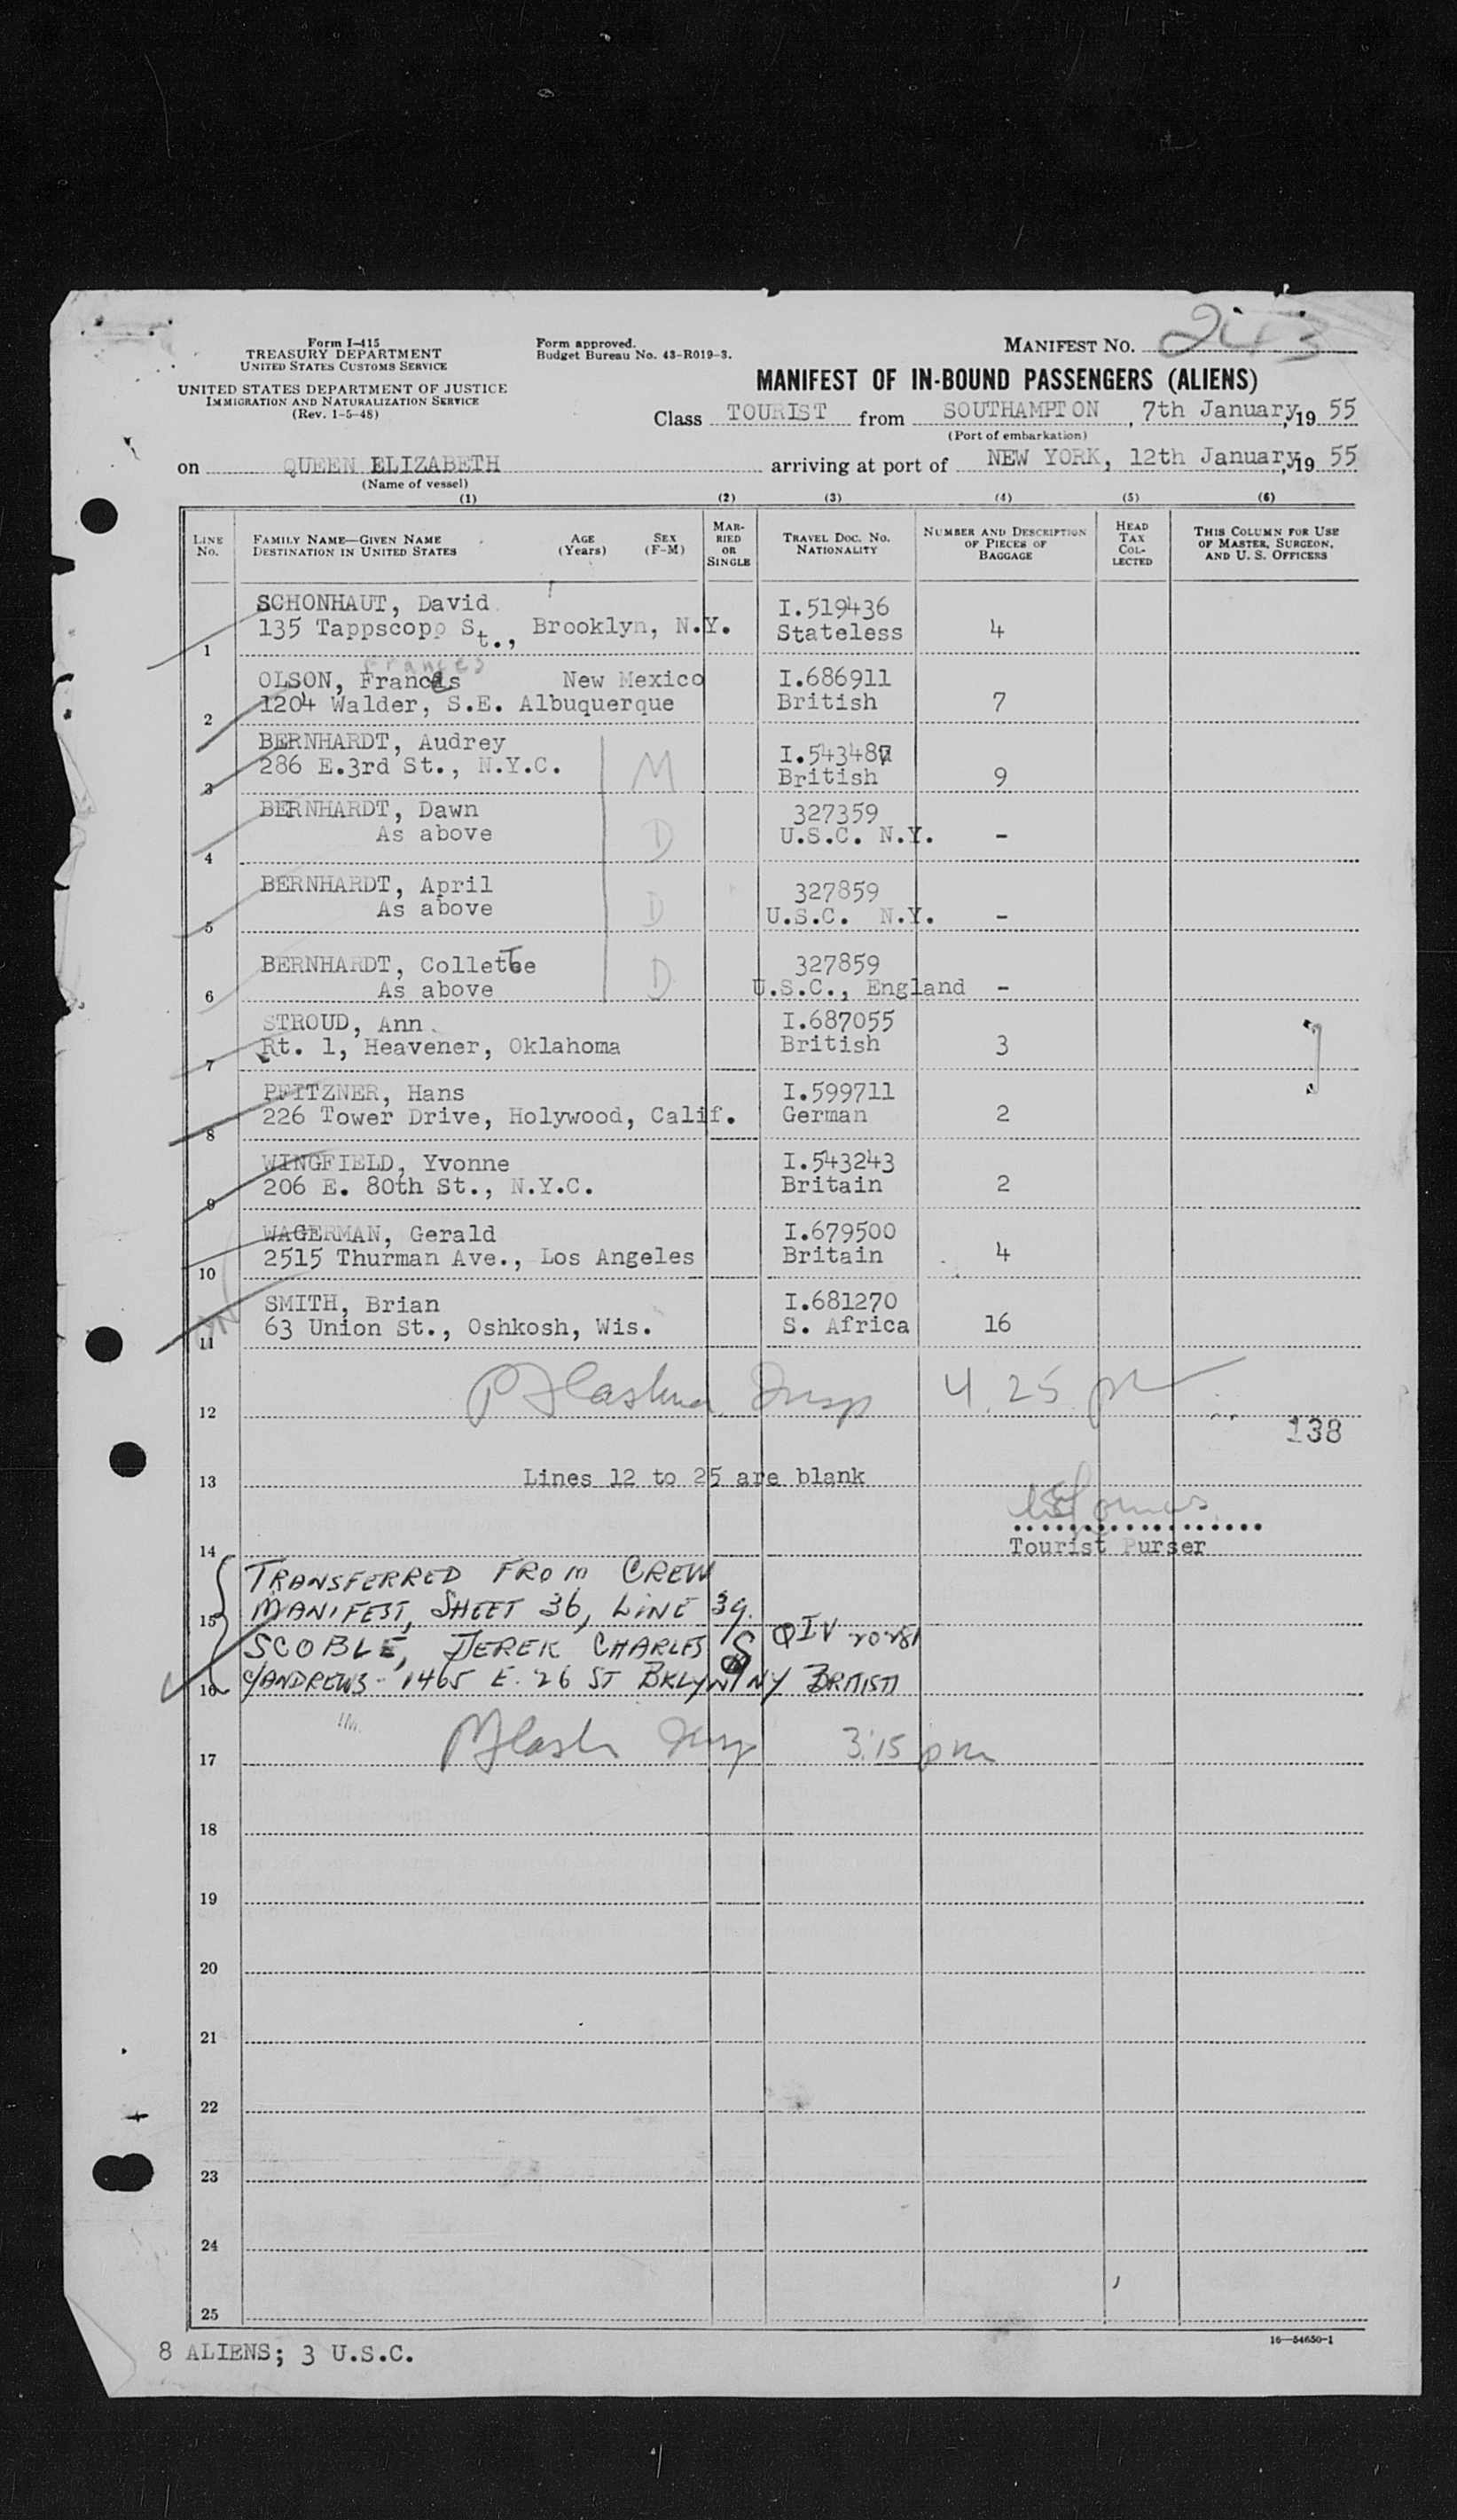 Form I-415
TREASURY DEPARTMENT
UNITED STATES CUSTOMS SERVICE
UNITED STATES DEPARTMENT OF JUSTICE
IMMIGRATION AND NATURALIZATION SERVICE
(Rev. 1-5-48)
Form approved.
Budget Bureau No. 43-R019-3.
MANIFEST NO.
MANIFEST OF IN-BOUND PASSENGERS (ALIENS)
Class TOURIST from SOUTHAMPTON, 7th January, 19 55
(Port of embarkation)
on QUEEN ELIZABETH arriving at port of NEW YORK, 12th January, 19 55
(Name of vessel)
(1) (2) (3) (4) (5) (6)
LINE No. FAMILY NAME—GIVEN NAME DESTINATION IN UNITED STATES AGE (Years) SEX (F-M) MARRIED OR SINGLE TRAVEL DOC. NO. NATIONALITY NUMBER AND DESCRIPTION OF PIECES OF BAGGAGE HEAD TAX COLLECTED THIS COLUMN FOR USE OF MASTER, SURGEON, AND U. S. OFFICERS
SCHONHAUT, David I.519436
1 135 Tappscopp St., Brooklyn, N.Y. Stateless 4
Frances
OLSON, Frances New Mexico I.686911
2 1204 Walder, S.E. Albuquerque British 7
BERNHARDT, Audrey I.543487
3 286 E.3rd St., N.Y.C. M British 9
BERNHARDT, Dawn 327359
4 As above D U.S.C. N.Y. -
BERNHARDT, April 327859
5 As above D U.S.C. N.Y. -
BERNHARDT, Collette 327859
6 As above D U.S.C., England -
STROUD, Ann I.687055
7 Rt. 1, Heavener, Oklahoma British 3
PFITZNER, Hans I.599711
8 226 Tower Drive, Holywood, Calif. German 2
WINGFIELD, Yvonne I.543243
9 206 E. 80th St., N.Y.C. Britain 2
WAGERMAN, Gerald I.679500
10 2515 Thurman Ave., Los Angeles Britain 4
SMITH, Brian I.681270
11 63 Union St., Oshkosh, Wis. S. Africa 16
12 Insp 4.25 pm
138
13 Lines 12 to 25 are blank
14 Tourist Purser
TRANSFERRED FROM CREW
15 MANIFEST, SHEET 36, LINE 39.
SCOBLE, DEREK CHARLES S QIV 20281
16 c/ANDREWS - 1465 E. 26 ST BKLYN NY BRITISH
17 Insp 3:15 pm
18
19
20
21
22
23
24
25
16—54650-1
8 ALIENS; 3 U.S.C.